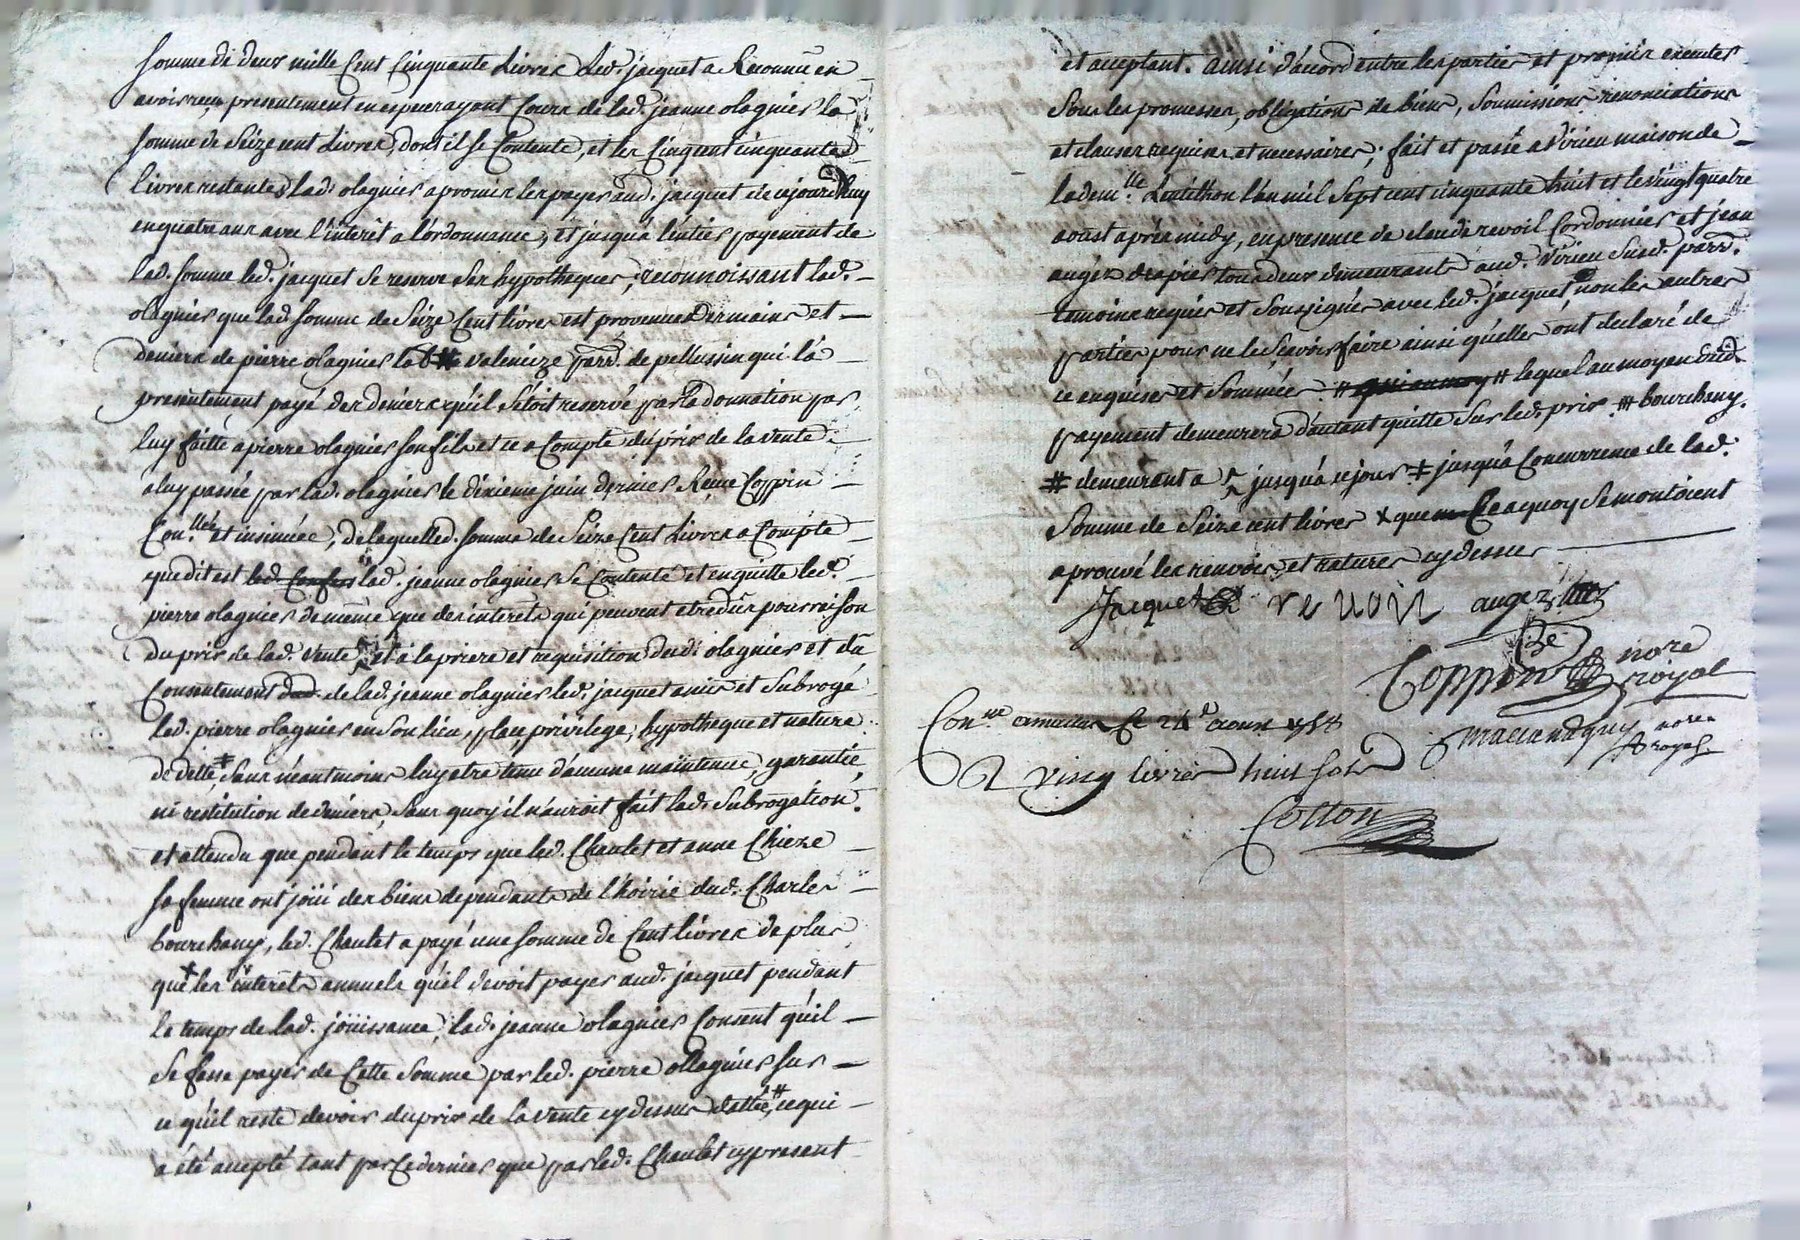 somme de deux mille Cent Cinquante Livres Led. jacquet a Reconnu en
avoir reçu presentement en especes ayant Cours de lad. jeanne olagnier la
somme de Seize cent Livres, dont il se Contente, et les Cinq cent cinquante
livres restantes lad. olagnier a promis les payer aud. jacquet de cejourdhuy
en quatre ans avec l'interêt a l'ordonnance, et jusqua l'entier payement de
lad. somme led. jacquet se reserve ses hypotheques; reconnoissant lad.
olagnier que lad. somme de Seize Cent livres est provenue des mains et
deniers de pierre olagnier lab # valencize parr. de pellussin qui l'a
presentement payé des deniers qu'il s'etoit reservé par la donnation par
luy faitte a pierre olagnier son fils et ce a Compte du prix de la vente
a luy passée par lad. olagnier le dixieme juin dernier Reçue Coppin
Con.llée et insinuée, de laquelle d. somme de Seize Cent Livres a Compte
que dit est led. Confes lad. jeanne olagnier se Contente et en quitte led.
pierre olagnier de même que des interêts qui peuvent etre dûs pour raison
du prix de lad. vente, et a la priere et requisition dud. olagnier et du
Consentement dud. de lad. jeanne olagnier led. jacquet a mis et subrogé
led. pierre olagnier en son lieu, place, privilege, hypotheque et nature
de dette, sans néantmoins luy etre tenu d'aucune maintenue, garantie,
ni restitution de deniers, sans quoy il n'auroit fait lad. subrogation.
et attendu que pendant le temps que led. Chaulet et anne Chieze
sa femme ont joüi des biens dependants de l'hoirie dud. Charles
bourchany, led. Chaulet a payé une somme de Cent livres de plus
que les interêts annuels qu'il devoit payer aud. jacquet pendant
le temps de lad. joüissance, lad. jeanne olagnier Consent qu'il
se fasse payer de Cette somme par led. pierre ollagnier sur
ce qu'il reste devoir du prix de la vente cy dessus dattée, # ce qui
a été accepté tant par Ce dernier que par led. Chaulet cy present
et acceptant. ainsi d'accord entre les parties et promis executer
sous les promesses, obligations de biens, soumissions renonciations
et clauses requises et necessaires; fait et passé a Virieu maison de
la dem.lle Lentilhon l'an mil Sept cent cinquante huit et le vingt quatre
aoust aprés midy, en presence de claude revoil Cordonnier et jean
augez drapier tous deux demeurants aud. Virieu susd. parr.
temoins requis et soussignés avec led. jacquet, non les autres
parties pour ne le sçavoir faire ainsi qu'elles ont declaré de
ce enquises et sommées. # lequel au moyen dud.
payement demeurera d'autant quitte sur led. prix. # bourchany.
# demeurant a jusqu'a ce jour ‡ jusqu'a Concurrence de lad.
somme de Seize cent livres x que Ce a quoy se montoient
aprouvé les renvois et ratures cy dessus
Jacquet revoil augez
Coppin nore royal
Con.lle a le 24e aoust 1758
R vingt livres huit sols
Marandguy nore royal
Cotton